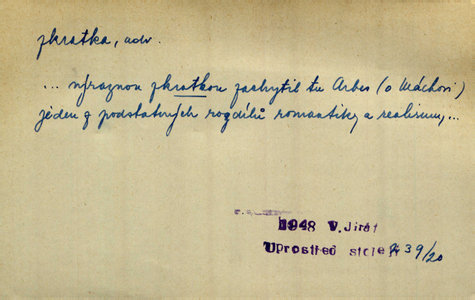 zkratka, adv.
... výraznou zkratkou zachytil tu Arbes (o Máchovi)
jeden z podstatných rozdílů romantiky a realismu, ...
1948 V. Jirát
Uprostřed stole 39/20